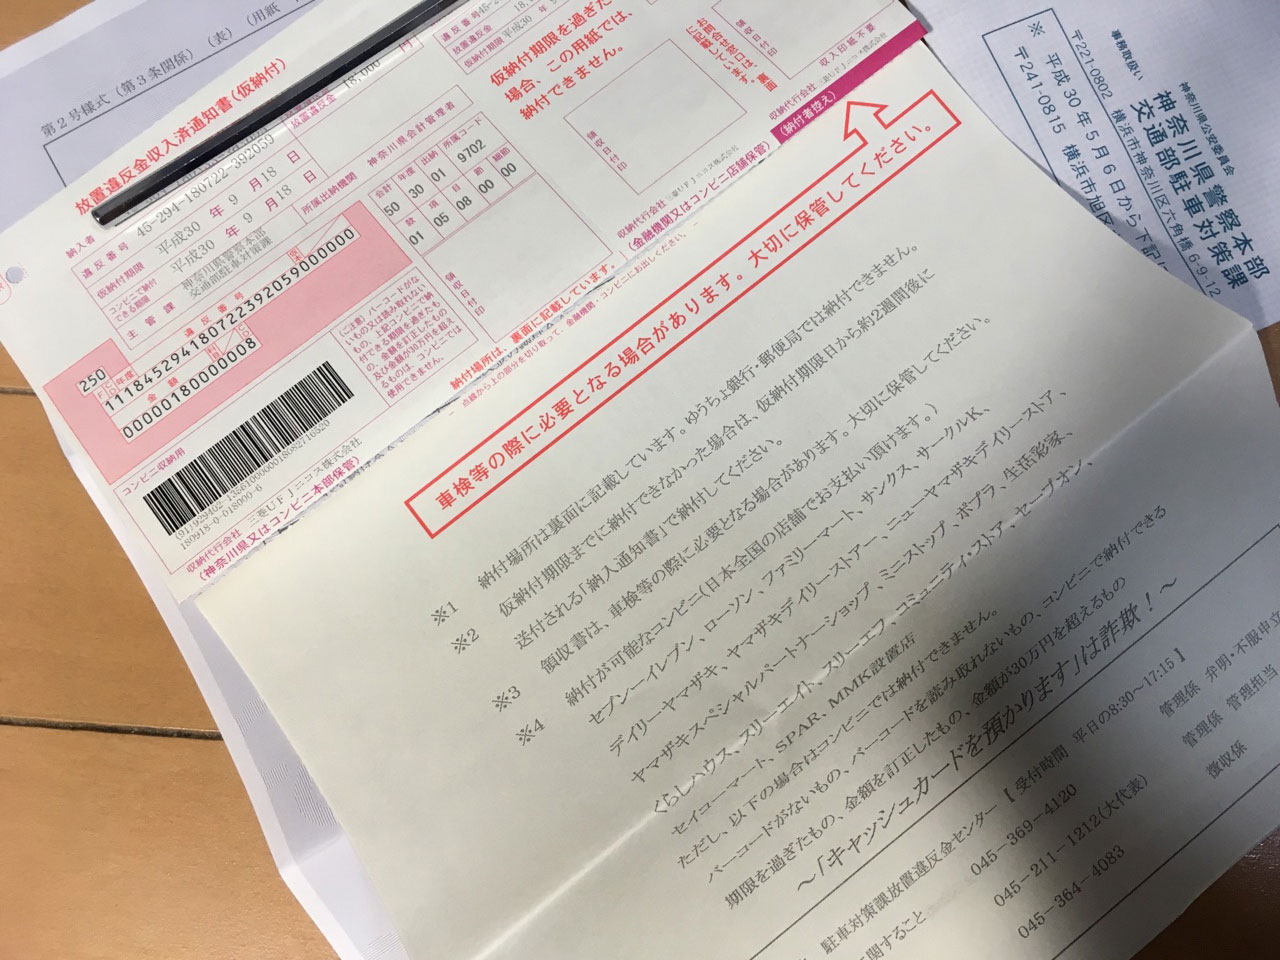 第2号様式(第3条関係)(表)(用紙
放置違反金収入済通知書(仮納付)
納入者
違反番号 45-294-180722-392059
仮納付期限 平成30年9月18日
コンビニで納付できる期限 平成30年9月18日
主管課 神奈川県警察本部
交通部駐車対策課
放置違反金 18,000 円
神奈川県会計管理者
所属出納機関
会計 年度 出納 所属コード
50 30 01 9702
款 項 目 節 細節
01 05 08 00 00
違反番号
250
年度
1118452941807223920590000000
金額
0000180000008
コンビニ収納用
(91)929402-1356100000018082716520
180918-0-018000-6
収納代行会社 三菱UFJニコス株式会社
(神奈川県又はコンビニ本部保管)
(ご注意)バーコードがな
いもの又は読み取れない
もの、上記コンビニで納
付できる期限を過ぎたも
の、金額を訂正したもの
及び金額が30万円を超え
るものは、コンビニでは
使用できません。
領収日付印
納付場所は、裏面に記載しています。
点線から上の部分を切り取って、金融機関・コンビニにお出しください。
違反番号
放置違反金 18,
仮納付期限 平成30年9
仮納付期限を過ぎた
場合、この用紙では、
納付できません。
領収日付印
収納代行会社 三菱UFJニコス株式会社
(金融機関又はコンビニ店舗保管)
お問合せ窓口は、裏面
に記載しています。
領収日付印
収入印紙不要
収納代行会社 三菱UFJニコス株式会社
(納付者控え)
車検等の際に必要となる場合があります。大切に保管してください。
※1 納付場所は裏面に記載しています。ゆうちょ銀行・郵便局では納付できません。
※2 仮納付期限までに納付できなかった場合は、仮納付期限日から約2週間後に
送付される「納入通知書」で納付してください。
※3 領収書は、車検等の際に必要となる場合があります。大切に保管してください。
※4 納付が可能なコンビニ(日本全国の店舗でお支払い頂けます。)
セブン-イレブン、ローソン、ファミリーマート、サンクス、サークルK、
デイリーヤマザキ、ヤマザキデイリーストアー、ニューヤマザキデイリーストア、
ヤマザキスペシャルパートナーショップ、ミニストップ、ポプラ、生活彩家、
くらしハウス、スリーエイト、スリーエフ、コミュニティ・ストア、セーブオン、
セイコーマート、SPAR、MMK設置店
ただし、以下の場合はコンビニでは納付できません。
バーコードがないもの、バーコードを読み取れないもの、コンビニで納付できる
期限を過ぎたもの、金額を訂正したもの、金額が30万円を超えるもの
~「キャッシュカードを預かります」は詐欺!~
駐車対策課放置違反金センター【受付時間 平日の8:30~17:15】
に関すること 045-369-4120 管理係 弁明・不服申立
045-211-1212(大代表) 管理係 管理担当
045-364-4083 徴収係
事務取扱い 神奈川県公安委員会
神奈川県警察本部
交通部駐車対策課
〒221-0802 横浜市神奈川区六角橋6-9-12
※ 平成30年5月6日から下記に
〒241-0815 横浜市旭区